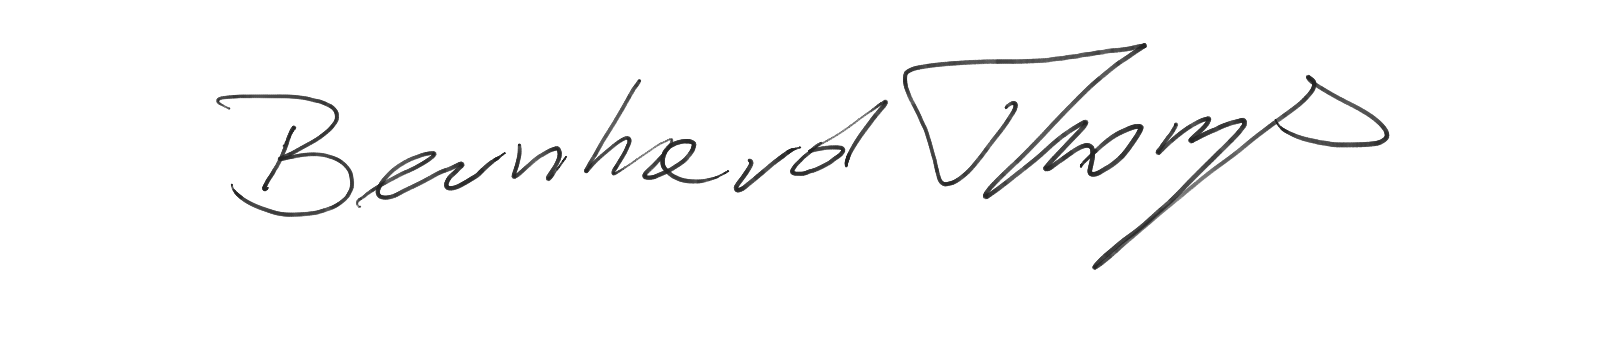 Bernhard Thomas